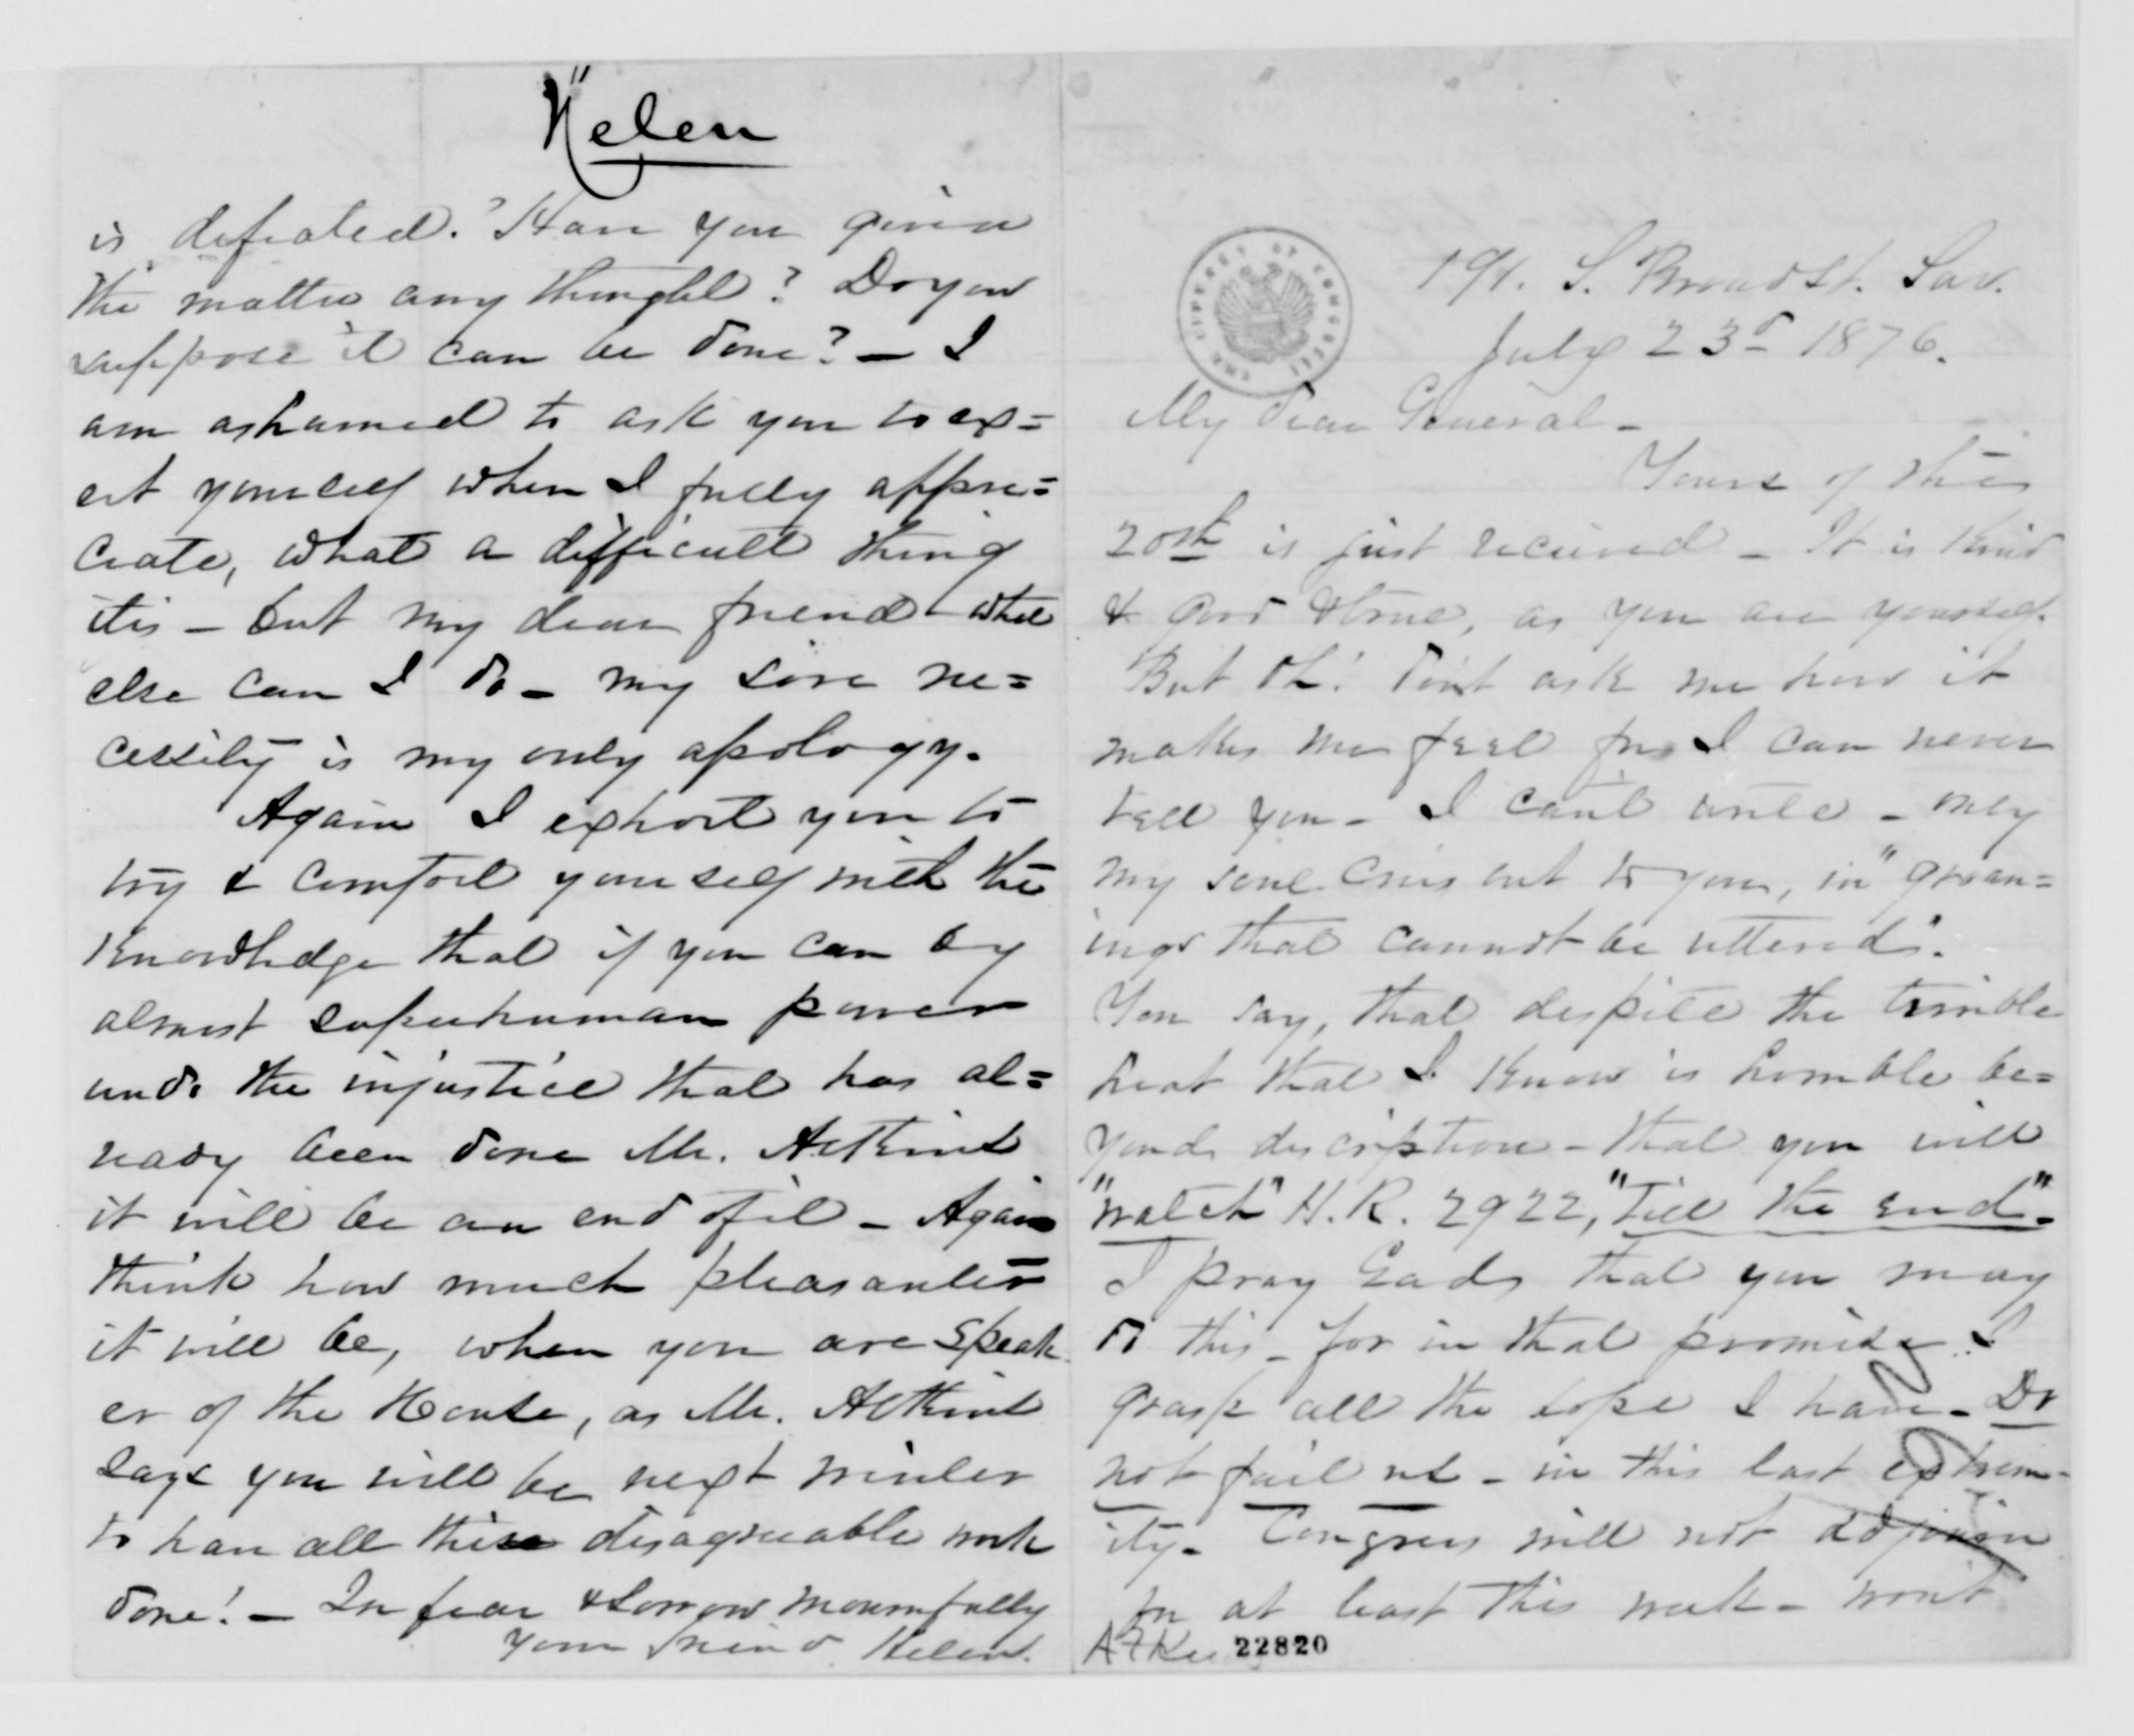 "Helen
is defeated? Have you given
the matter any thought? Do you
suppose it can be done? — I
am ashamed to ask you to ex=
ert yourself when I fully appre=
ciate, what a difficult thing
it is — but my dear friend — what
else can I do — my sore ne=
cessity is my only apology.
Again I exhort you to
try & comfort yourself with the
knowledge that if you can by
almost superhuman power
undo the injustice that has al=
ready been done Mr. Atkins
it will be an end of it — Again
think how much pleasanter
it will be, when you are Speak
er of the House, as Mr. Atkins
says you will be next winter
to have all this disagreeable work
done! — In fear & sorrow mournfully
your friend Helen.
191. S. Broad St. Sav.
July 23d 1876.
My dear General —
Yours of the
20th is just received — It is kind
& good & true, as you are yourself.
But oh! don't ask me how it
makes me feel for I can never
tell you — I can't write — only
my soul cries out to you, in "groan=
ings that cannot be uttered".
You say, that despite the terrible
heat that I know is horrible be=
yond description — that you will
"watch" H.R. 2922, "Till the end".
I pray God that you may
do this — for in that promise I
grasp all the hope I have — Do
not fail us — in this last extrem-
ity — Congress will not adjourn
for at least this week — won't
22820
THE LIBRARY OF CONGRESS